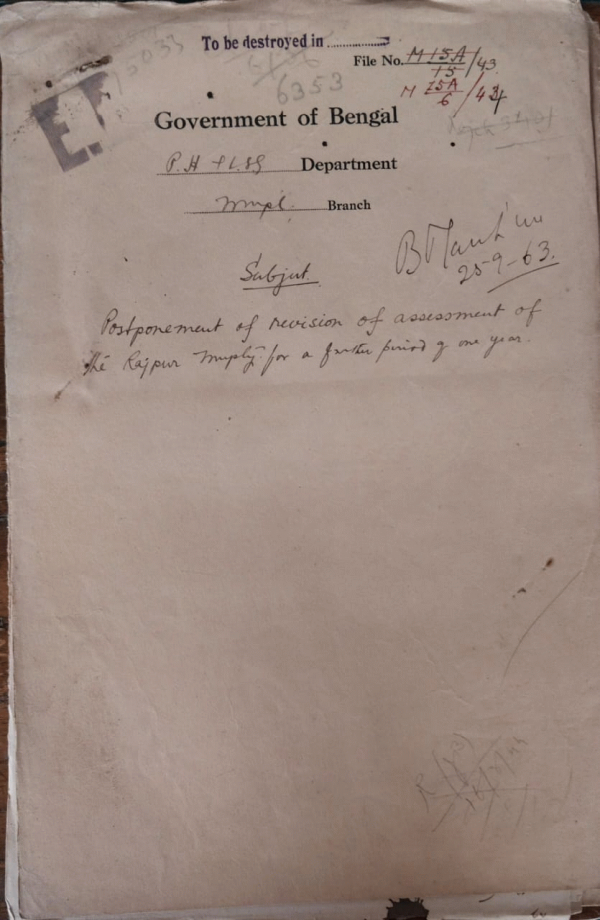 To be destroyed in ..................
6353
File No. M 15A/15/43
M 25A/6/43
E.F
Government of Bengal
P.H & L.SG Department
Mupl. Branch
25-9-63.
Subject
Postponement of revision of assessment of
the Rajpur Muply for a further period of one year.